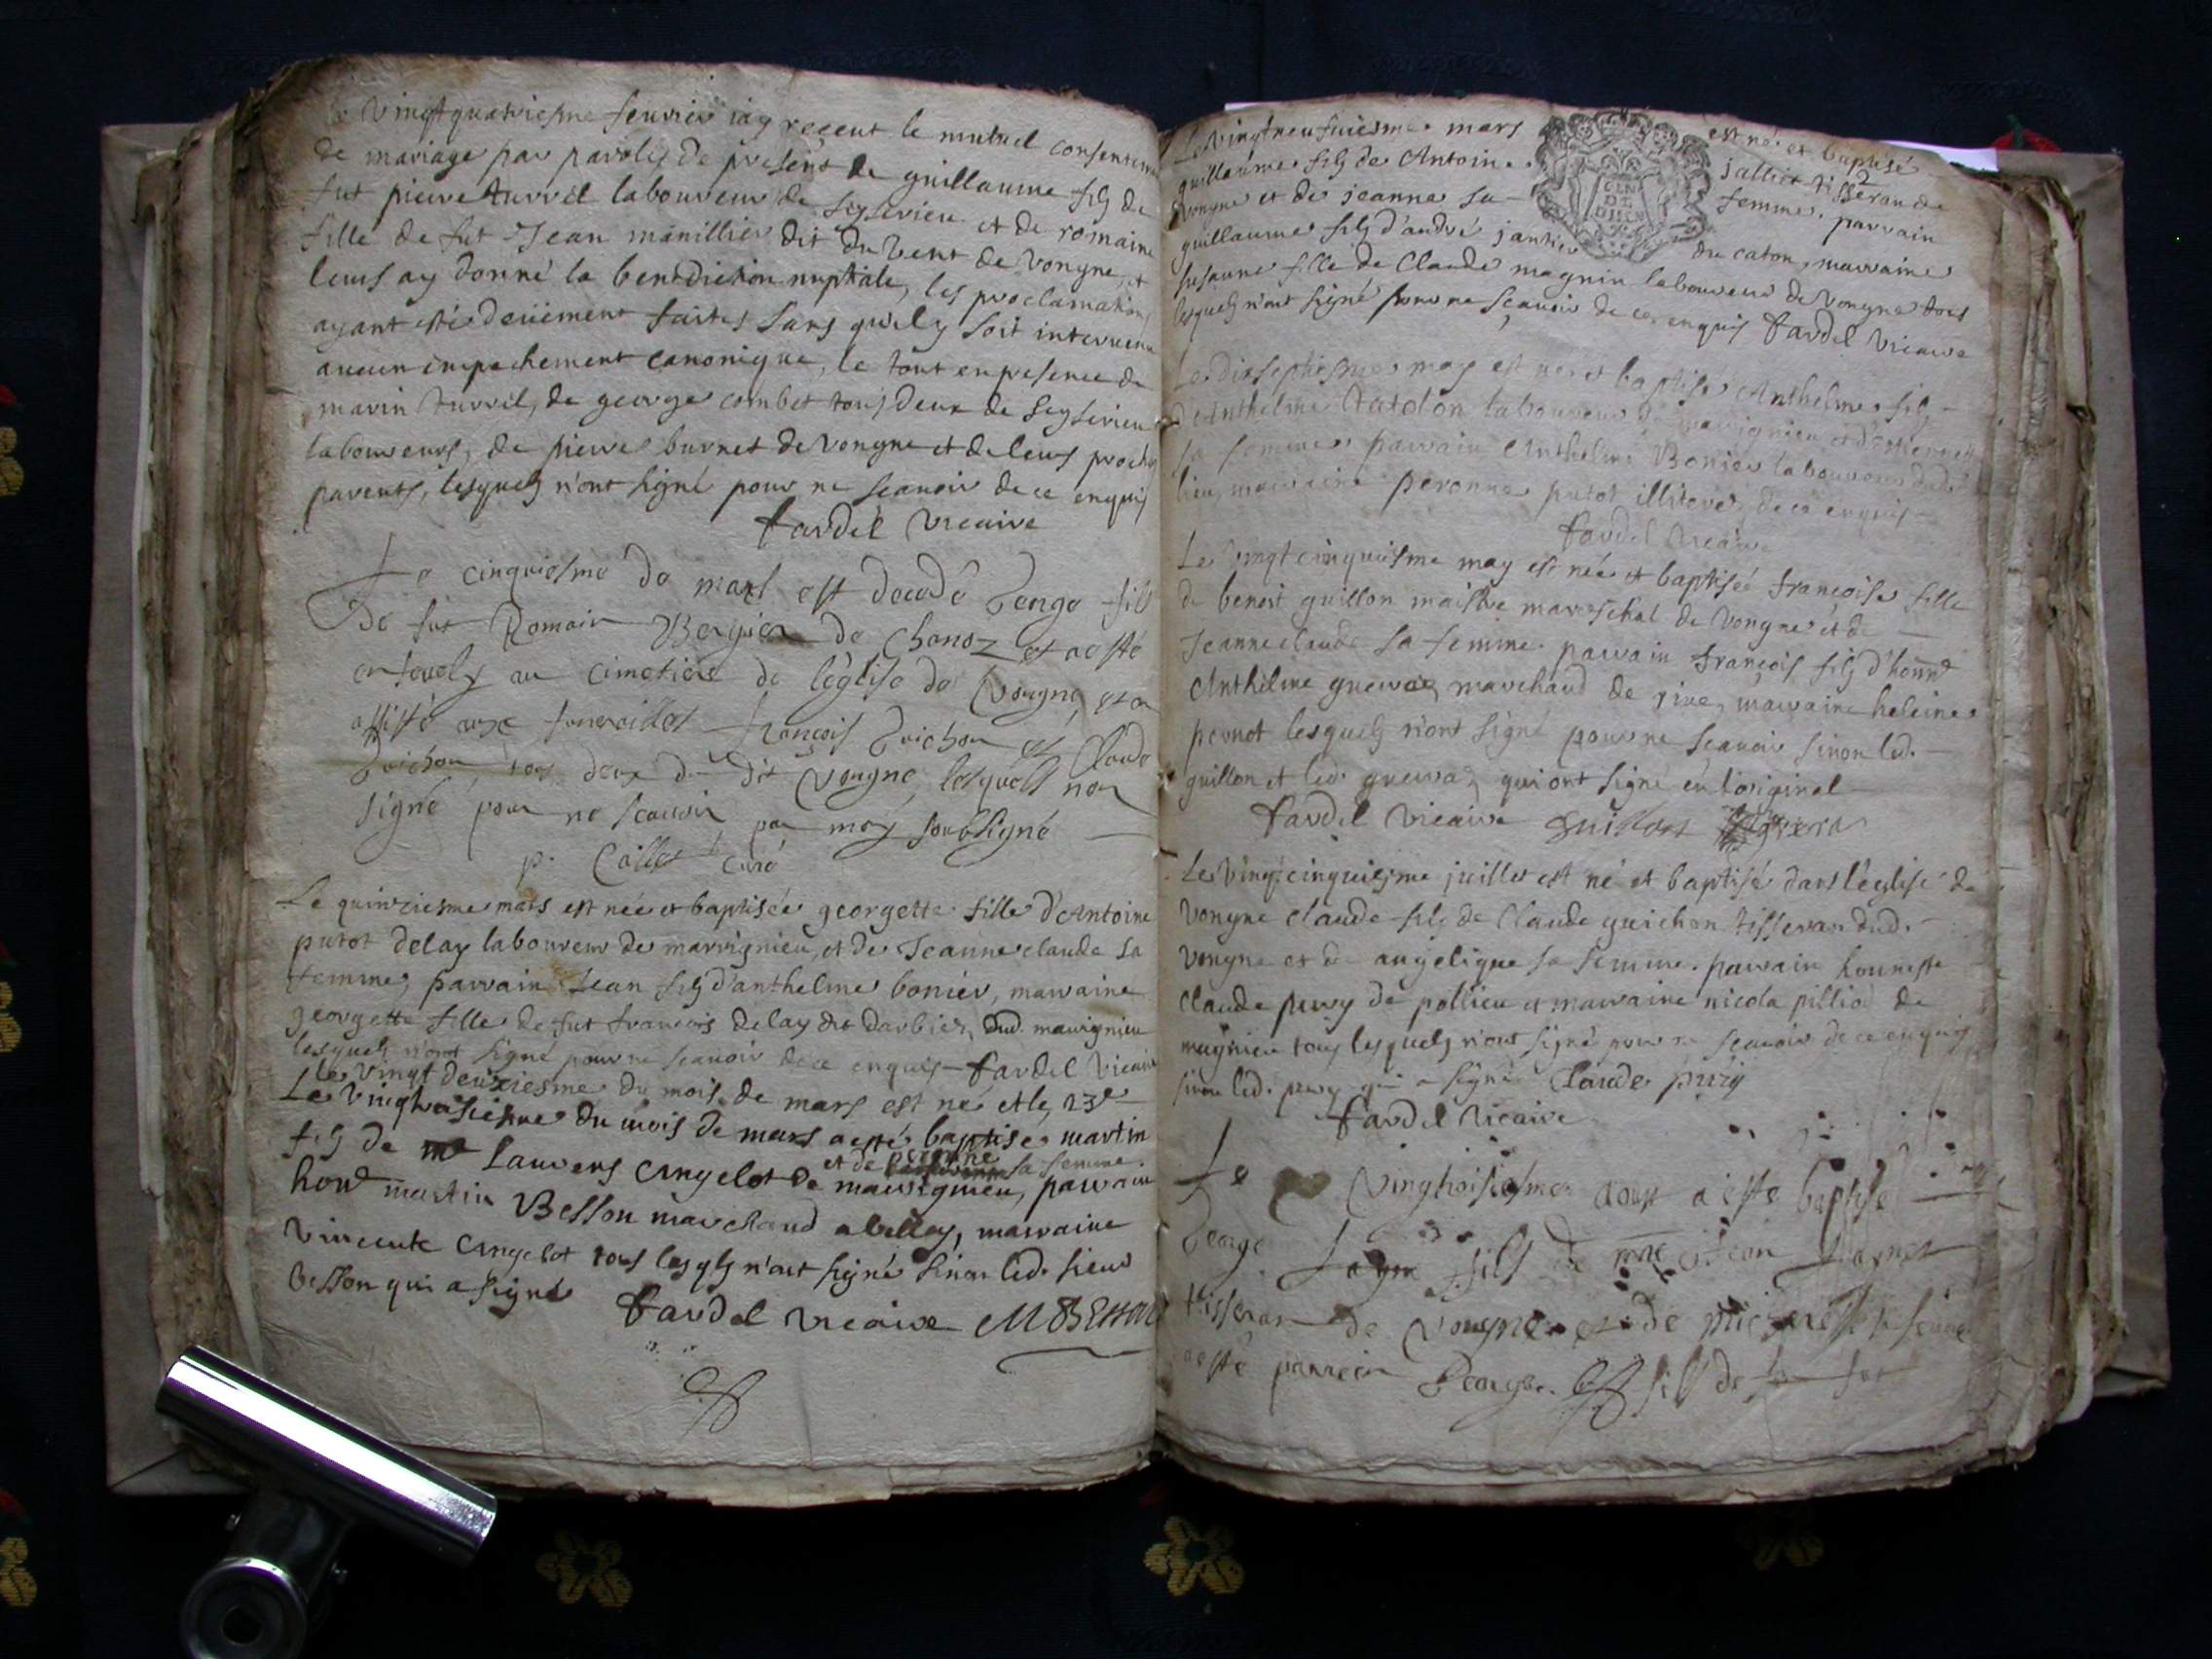 Le vingt quatriesme feuvrier iay receut le mutuel consentem
de mariage par paroles de present de guillaume filz de
fut pierre turril laboureur de seyserieu et de romaine
fille de fut Jean manillier dit du vent de vongne, et
leurs ay donné la benediction nuptiale, les proclamations
ayant esté deüement faites sans quil y soit intervenu
aucun empechement canonique, le tout en presence de
marin turril, de george combet tous deux de Seyserieu
laboureurs, de pierre burnet de vongne et de leurs proches
parents, lesquelz n'ont signé pour ne scavoir de ce enquis
tardel vicaire
Le cinquiesme de mars est decedé George fils
de fut Romain Bergier de Chanoz et a esté
ensevely au cimetiere de l'eglise de Vongne, et a
assisté aux funerailles françois Guichon et Claude
Guichon tous deux du dit Vongne, lesquels non
signé pour ne scavoir par moy soubsigné
p. Collet curé
Le quinziesme mars est née et baptisée georgette fille d'Antoine
putot delay laboureur de marignieu, et de Jeanne claude sa
femme, parrain Jean filz d'anthelme bonier, marraine
georgette fille de fut francois delay dit darbier, dud. marignieu
lesquelz n'ont signé pour ne scavoir de ce enquis tardel vicaire
Le vingt deuxiesme du mois de mars est né et le 23e
Le vingtroisiesme du mois de mars a esté baptisé martin
filz de Laurens Angelot de marignieu, parrain
et de sa femme.
hond martin Besson marchand a belley, marraine
vincente Angelot tous lesqlz n'ont signé sinon led. sieur
Besson qui a signé
tardel vicaire M BESSON
Le vingtneufuiesme mars est né et baptisé
guillaume filz de Antoine jallier tisseran de
2
vongne et de jeanne sa femme. parrain
guillaume filz d'andré janvier du caton, marraine
susanne fille de Claude magnin laboureur de vongne tous
lesquelz n'ont signé pour ne scavoir de ce enquis tardel vicaire
Le dixseptiesme may est né et baptisé Anthelme filz
d'Anthelme tatolon laboureur de marignieu et d'estiennette
sa femme. parrain Anthelme Bonier laboureur dud.
lieu, marraine peronne putot illiterez de ce enquis
tardel vicaire
Le vingt cinquiesme may est née et baptisée françoise fille
de benoit guillon maistre mareschal de vongne et de
Jeanne claude sa femme. parrain françois filz d'honnt
Anthelme marchand de rive, marraine heleine
pernot lesquelz n'ont signé pour ne scavoir sinon led.
guillon et led. qui ont signé en l'original
tardel vicaire guillon
Le vingt cinquiesme juillet est né et baptisé dans l'eglise de
vongne claude filz de Claude guichon tisseran dud.
vongne et de angelique sa femme. parrain honneste
claude pery de pollieu et marraine nicola pilliod de
magnieu tous lesquelz n'ont signé pour ne scavoir de ce enquis
sinon led. pery qui a signé Claude pery
tardel vicaire
Le Vingtroisiesme aoust a esté baptisé
George fils de Jean
tisseran de Vongne et de sa femme
a esté parrein George fils de fut